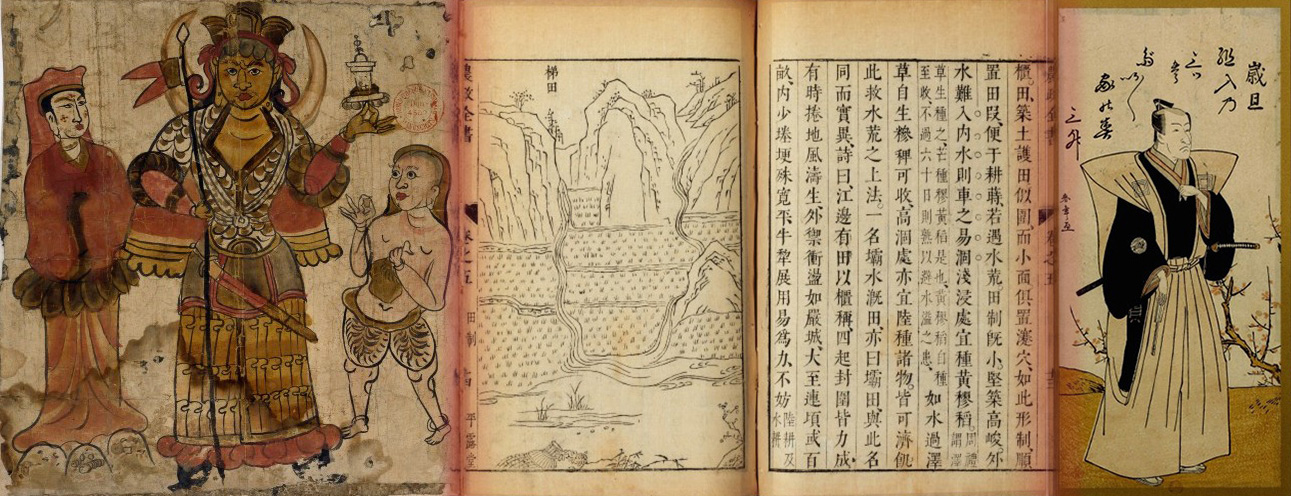 櫃田、築土護田、似圍而小、面俱置瀽穴、如此形制、順
置田段、便于耕蒔、若遇水荒、田制旣小、堅築高峻、外
水難入、内水則車之易涸、淺浸處宜種黃穋稻。周禮謂澤
草生種之芒種穋黃稻是也、黃穋稻自種
至收、不過六十日則熟、以避水溢之患、如水過澤
草自生穇稗可收、高涸處亦宜陸種諸物、皆可濟飢
此救水荒之上法。一名壩水溉田、亦曰壩田、與此名
同而實異、詩曰、江邊有田以櫃稱、四起封圍皆力成
有時捲地風濤生、外禦衝盪如嚴城、大至連頃或百
畝、内少塍埂殊寬平、牛犂展用易爲力、不妨陸耕及水耕
農政全書 卷之五 田制 平露堂
梯田
歳旦